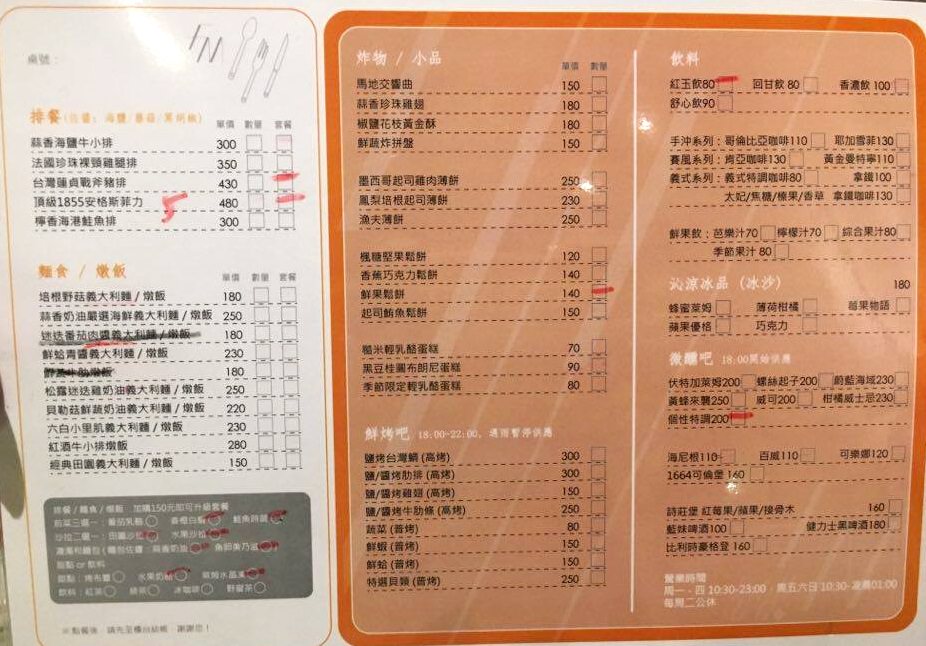 桌號：
排餐(佐醬：海鹽/蘑菇/黑胡椒) 單價 數量 套餐
蒜香海鹽牛小排 300
法國珍珠裸頸雞腿排 350
台灣蓮貞戰斧豬排 430
頂級1855安格斯菲力 480
檸香海港鮭魚排 300
麵食 / 燉飯 單價 數量 套餐
培根野菇義大利麵 / 燉飯 180
蒜香奶油嚴選海鮮義大利麵 / 燉飯 250
迷迭番茄肉醬義大利麵 / 燉飯 180
鮮蛤青醬義大利麵 / 燉飯 230
燉飯 180
松露迷迭雞奶油義大利麵 / 燉飯 250
貝勒菇鮮蔬奶油義大利麵 / 燉飯 220
六白小里肌義大利麵 / 燉飯 230
紅酒牛小排燉飯 280
經典田園義大利麵 / 燉飯 150
排餐 / 麵食 / 燉飯 加購150元即可升級套餐
前菜三選一：番茄乳酪 香橙白 鮭魚時蔬
沙拉二選一：田園沙拉 水果沙拉
甜點 or 飲料
甜點：烤布蕾 水果奶酪
飲料：紅茶 綠茶 冰咖啡 野蜜茶
※點餐後，請先至櫃台結帳，謝謝您！
炸物 / 小品 單價 數量
馬地交響曲 150
蒜香珍珠雞翅 180
椒鹽花枝黃金酥 180
鮮蔬炸拼盤 150
墨西哥起司雞肉薄餅 250
鳳梨培根起司薄餅 230
漁夫薄餅 250
楓糖堅果鬆餅 120
香蕉巧克力鬆餅 140
鮮果鬆餅 140
起司鮪魚鬆餅 150
糙米輕乳酪蛋糕 70
黑豆桂圓布朗尼蛋糕 90
季節限定輕乳酪蛋糕 80
鮮烤吧 18:00~22:00，遇雨暫停供應
鹽烤台灣鯛 (高烤) 300
鹽/醬烤肋排 (高烤) 300
鹽/醬烤雞翅 (高烤) 150
鹽/醬烤牛肋條 (高烤) 250
蔬菜 (普烤) 80
鮮蝦 (普烤) 150
鮮蛤 (普烤) 150
特選貝類 (普烤) 250
飲料
紅玉飲80 回甘飲 80 香濃飲 100
舒心飲90
手沖系列：哥倫比亞咖啡110 耶加雪菲130
賽風系列：肯亞咖啡130 黃金曼特寧110
義式系列：義式特調咖啡80 拿鐵100
太妃/焦糖/榛果/香草 拿鐵咖啡130
鮮果飲：芭樂汁70 檸檬汁70 綜合果汁80
季節果汁 80
沁涼冰品 (冰沙) 180
蜂蜜萊姆 薄荷柑橘 莓果物語
蘋果優格 巧克力
微醺吧 18:00開始供應
伏特加萊姆200 螺絲起子200 蔚藍海域230
黃蜂來襲250 威可200 柑橘威士忌230
個性特調200
海尼根110 百威110 可樂娜120
1664可倫堡 160
詩莊堡 紅莓果/蘋果/接骨木 160
藍妹啤酒100 健力士黑啤酒180
比利時豪格登 160
營業時間
周一 - 四 10:30-23:00，周五六日 10:30-凌晨01:00
每周二公休